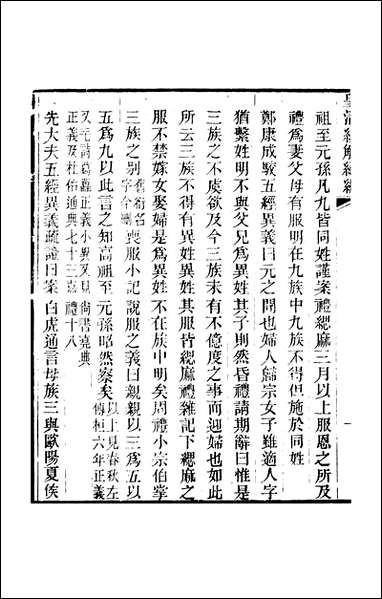 皇清經解續編
祖至元孫凡九皆同姓謹案禮緦麻三月以上服恩之所及
禮爲妻父母有服明在九族中九族不得但施於同姓
鄭康成駁五經異義曰元之聞也婦人歸宗女子雖適人字
猶繫姓明不與父兄爲異姓其子則然昏禮請期辭曰惟是
三族之不虞欲及今三族未有不億度之事而迎婦也如此
所云三族不得有異姓異姓其服皆緦麻禮雜記下緦麻之
服不禁嫁女娶婦是爲異姓不在族中明矣周禮小宗伯掌
三族之別舊衍名字今刪喪服小記說服之義曰親親以三爲五以
五爲九以此言之知高祖至元孫昭然察矣以上見春秋左傳桓六年正義
又見詩葛藟正義小異又見尙書堯典
正義及杜佑通典七十三嘉禮十八
先大夫五經異義疏證曰案白虎通言母族三與歐陽夏侯